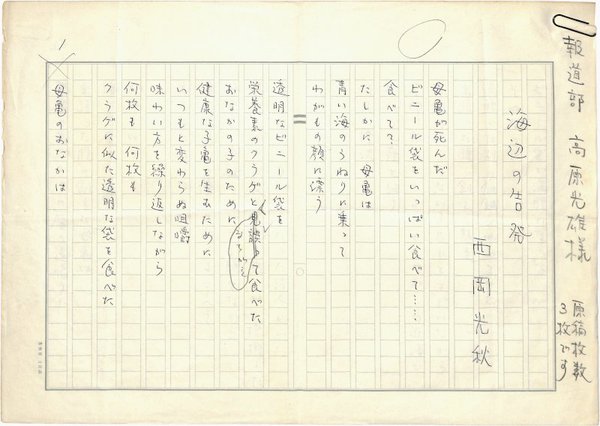 報道部 高原光雄様
原稿枚数
3枚です
海辺の告発
西岡光秋
母亀が死んだ
ビニール袋をいっぱい食べて……
食べて?
たしかに 母亀は
青い海のうねりに乗って
わがもの顔に漂う
透明なビニール袋を
栄養素のクラゲと見誤って食べた
まちがえ
おなかの子のために
健康な子亀を生むために
いつもと変わらぬ咀嚼
味わい方を繰り返しながら
何枚も 何枚も
クラゲに似た透明な袋を食べた
母亀のおなかは
1